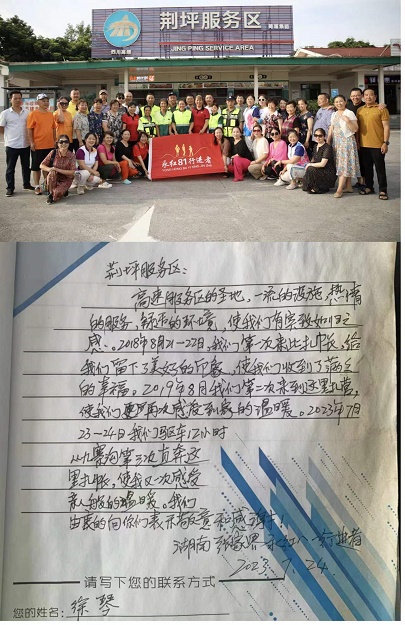 荆坪服务区
四川高速
JING PING SERVICE AREA
永红81行进者
荆坪服务区:
高速服务区的圣地,一流的设施,热情
的服务,舒市的环境,使我们有宾致如归之
感。2018年8月21—22日,我们第一次来此扎帐,给
我们留下了美好的印象,使我们收到了满之
的幸福。2019年8月我们第二次来到这里扎营,
使我们再次感受到家的温暖。2023年7月
23—24日我们驱车12小时
从九寨沟第三次直奔这
里扎帐,使我又一次感受
亲人般的温暖。我们
由衷的向你们表示敬意和感谢!
湖南张家界永红八一行进者
2023.7.24.
请写下您的联系方式
您的姓名:徐琴